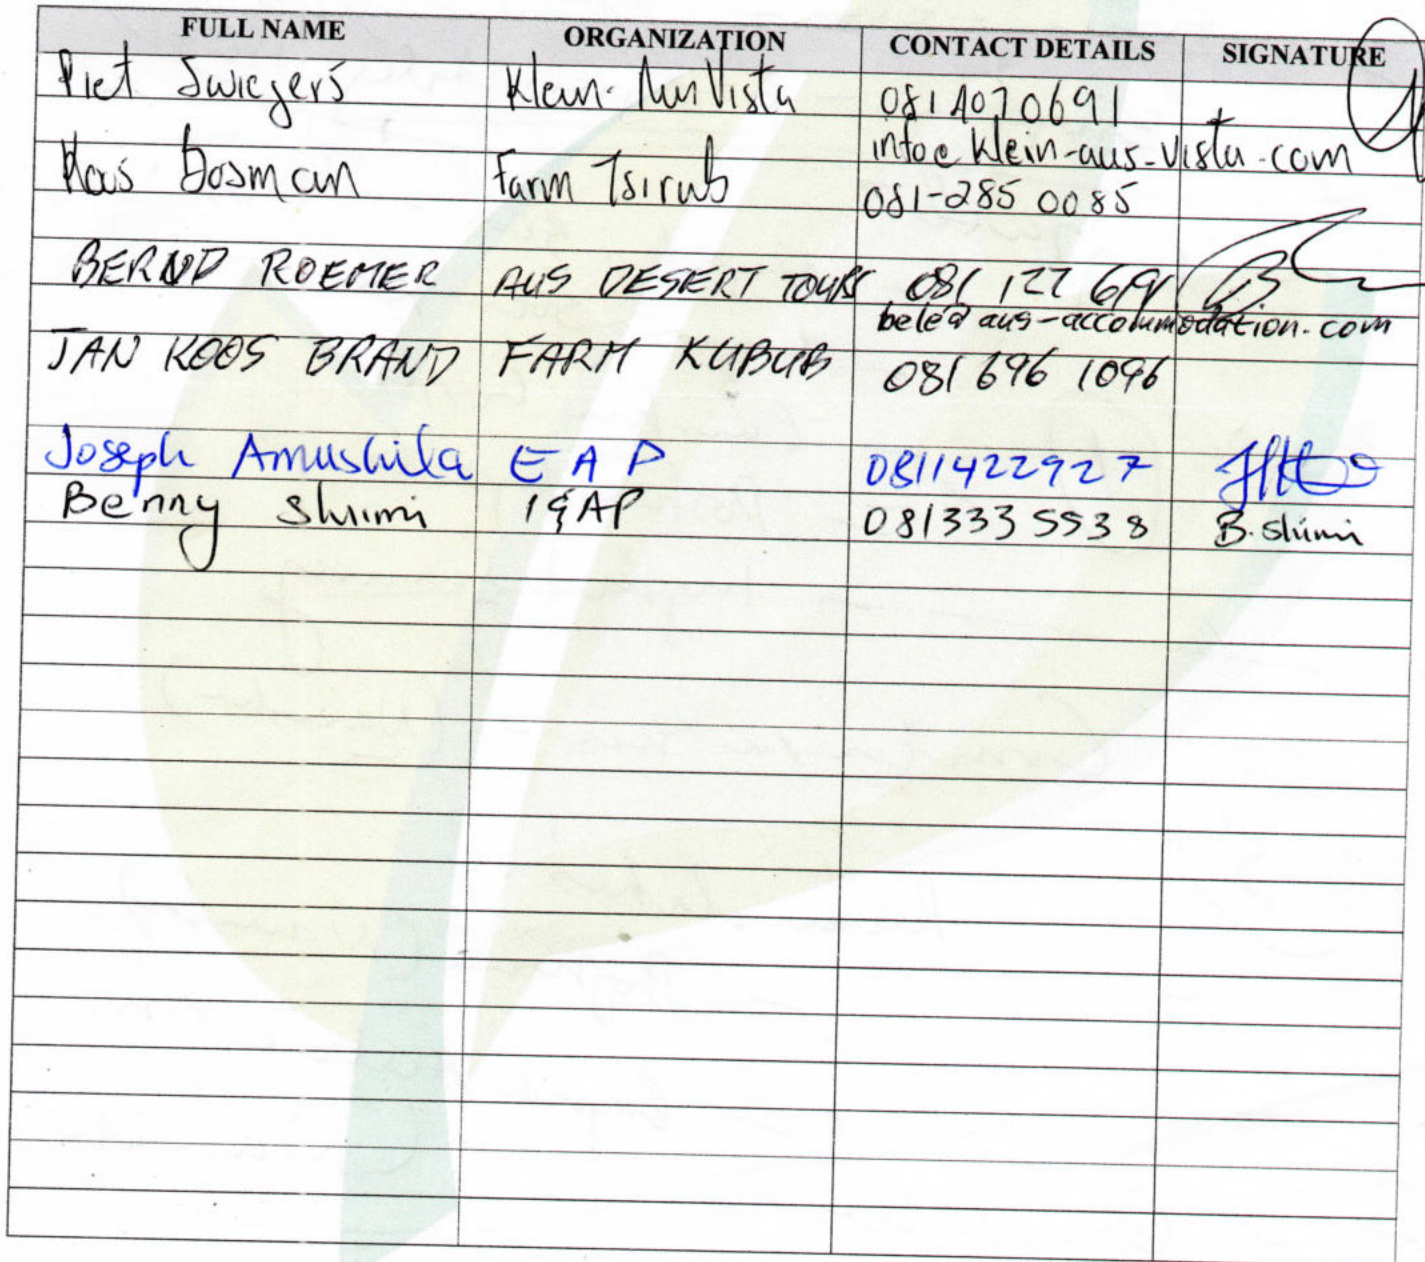 FULL NAME ORGANIZATION CONTACT DETAILS SIGNATURE
Piet Swiegers Klein-Aus Vista 0814070691
info@klein-aus-vista.com
Koos Bosman Farm Tsirub 081-285 0085
BERND ROEMER AUS DESERT TOURS 081 122
bele@aus-accommodation.com
JAN KOOS BRAND FARM KUBUB 081 696 1096
Joseph Amushila EAP 0811422927
Benny Shimi I&AP 0813335538 B. Shimi